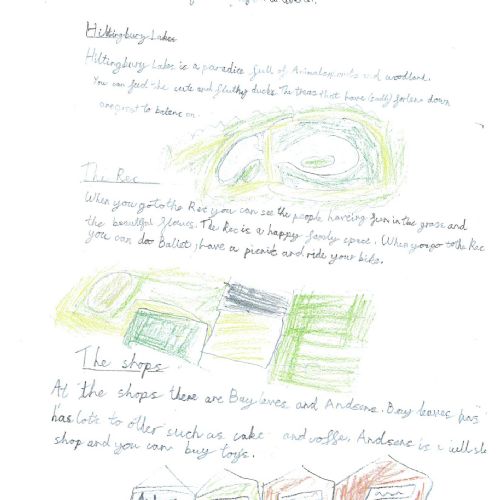 Hiltingbury Lakes
Hiltingbury Lakes is a paradise full of Animals, and woodland.
You can feed the cute and fluthy ducks. The trees that have (sadly) forlern down
are great to balenc on.
The Rec
When you go to the Rec you can see the people having fun in the grass and
the beautiful flowers. The Rec is a happy family space. When you go to the Rec
you can do Ballet, have a picnic and ride your bike.
The shops
At the shops there are Bay leaves and Andsens. Bay leaves
has lots to offer such as cake and coffe. Andsens is a
shop and you can buy toys.